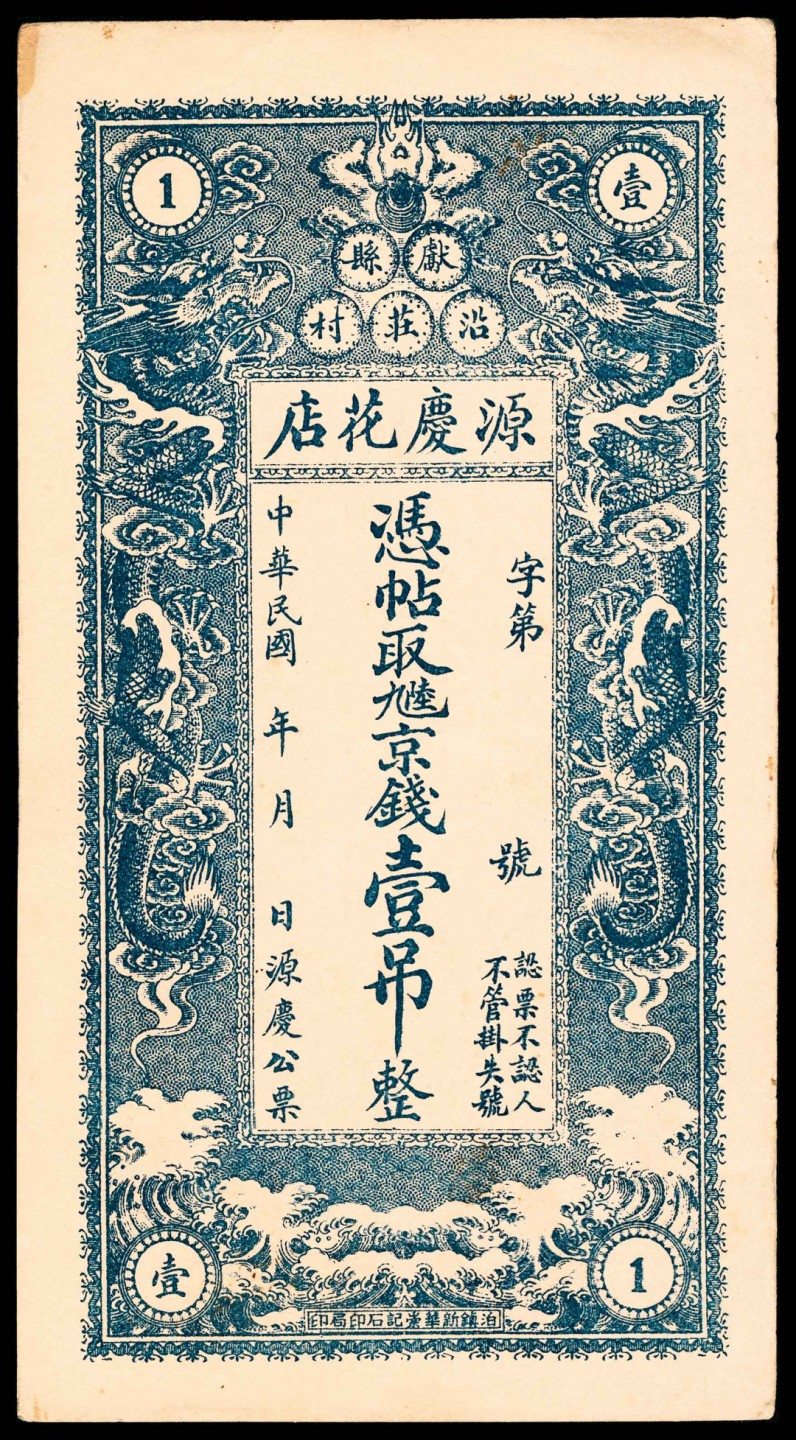 1 壹
獻縣
沿莊村
源慶花店
字第 號
認票不認人
不管掛失號
憑帖取九陸京錢壹吊整
中華民國 年 月 日源慶公票
壹 1
泊鎮新華 記石印局印